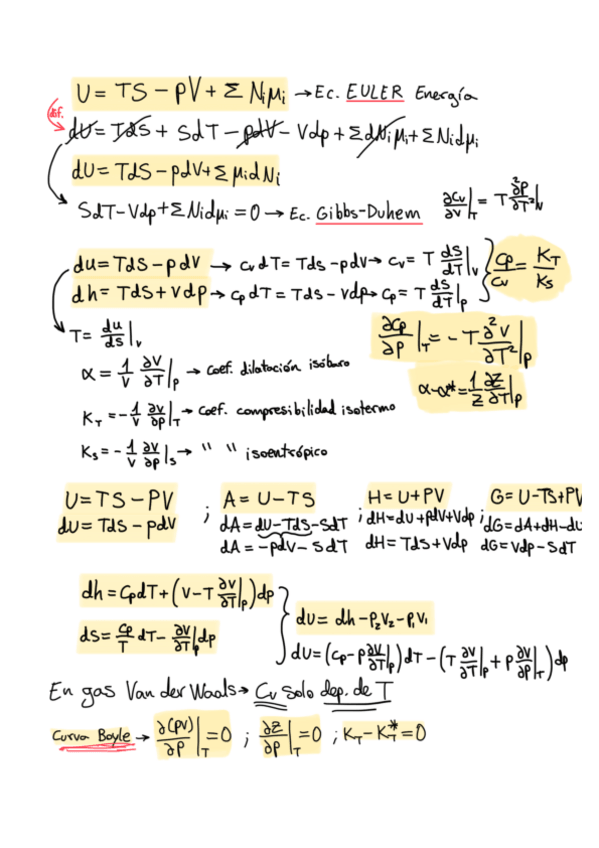 U = TS − pV + Σ Niμi → Ec. EULER Energía
dif. dU = TdS + SdT − pdV − Vdp + ΣdNiμi + ΣNidμi
dU = TdS − pdV + Σ μidNi
SdT − Vdp + ΣNidμi = 0 → Ec. Gibbs-Duhem
∂Cv/∂V|T = T ∂²P/∂T²|V
du = Tds − pdv → cvdT = Tds − pdv → cv = T ds/dT|v
dh = Tds + vdp → cpdT = Tds − vdp → cp = T ds/dT|p
Cp/cv = KT/Ks
T = du/ds|v
∂cp/∂P|T = −T ∂²v/∂T²|p
α = 1/V ∂V/∂T|p → coef. dilatación isóbaro
α − α* = 1/Z ∂Z/∂T|p
KT = −1/V ∂V/∂p|T → Coef. compresibilidad isotermo
Ks = −1/V ∂V/∂p|s → " " isoentrópico
U = TS − PV ; A = U − TS ; H = U + PV ; G = U − TS + PV
dU = TdS − pdV dA = dU − TdS − SdT dH = dU + pdV + Vdp dG = dA + dH − dU
dA = −pdV − SdT dH = TdS + Vdp dG = Vdp − SdT
dh = CpdT + (V − T ∂V/∂T|p)dp
dU = dh − P2V2 − P1V1
ds = cp/T dT − ∂V/∂T|p dp
dU = (cp − p ∂V/∂T|p)dT − (T ∂V/∂T|p + p ∂V/∂p|T)dp
En gas Van der Waals → Cv solo dep. de T
Curva Boyle → ∂(pv)/∂P|T = 0 ; ∂Z/∂P|T = 0 ; KT − KT* = 0